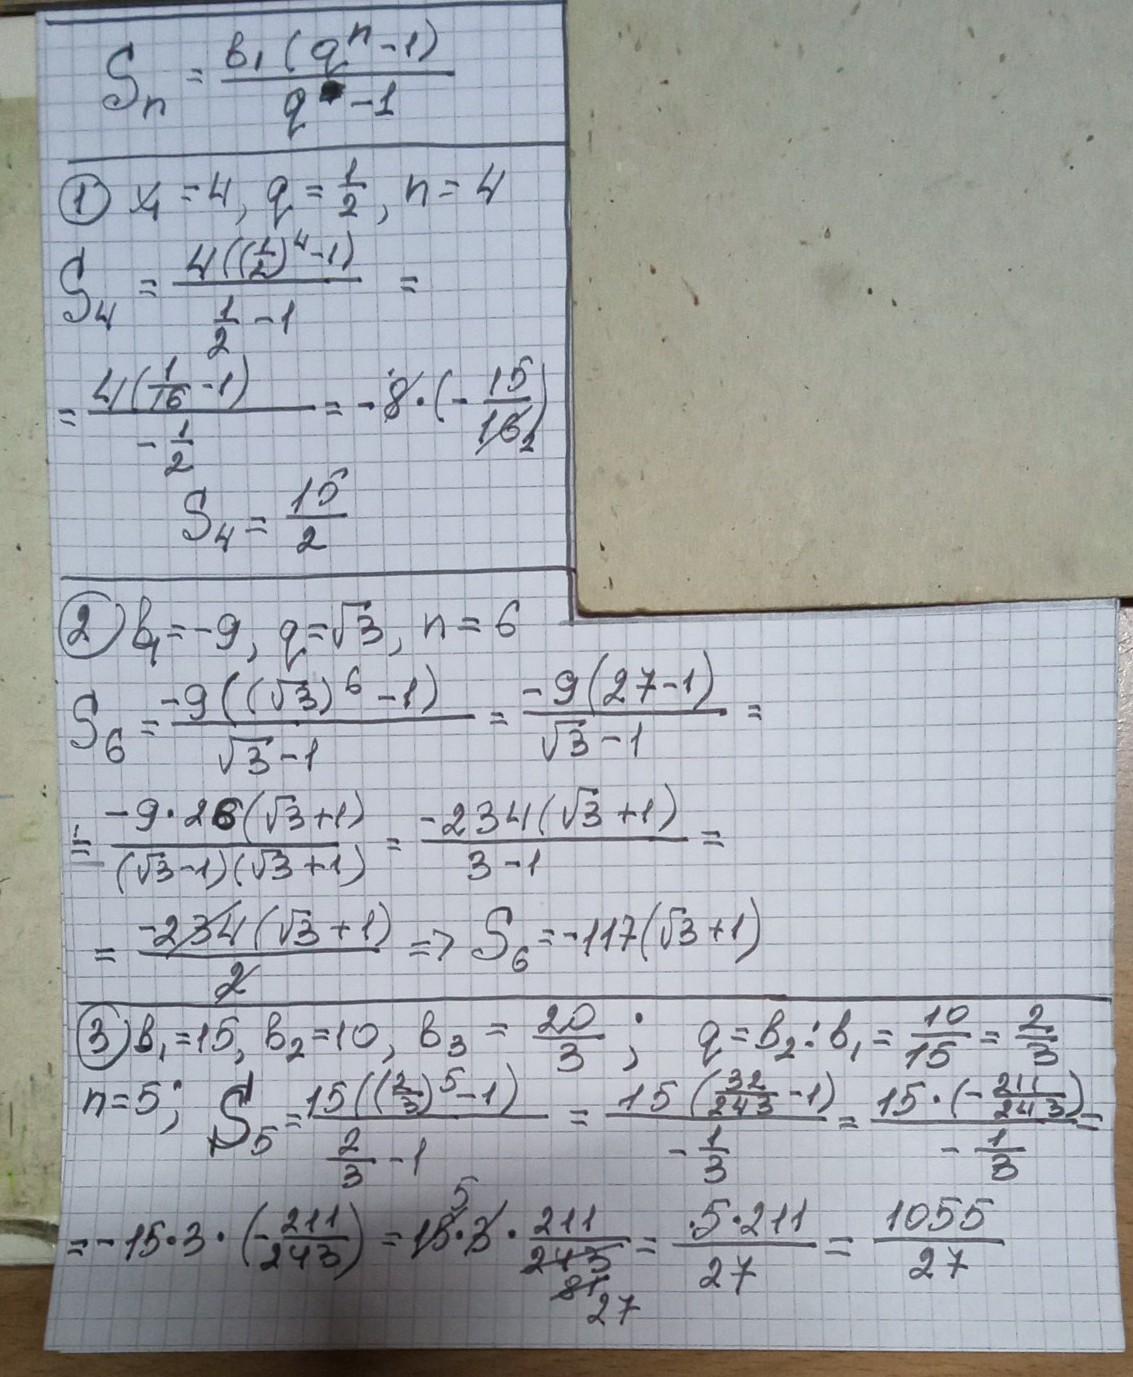 Sₙ = в₁(qⁿ-1) / q-1
① x₁=4, q=1/2, n=4
S₄ = 4((1/2)⁴-1) / 1/2-1 =
= 4(1/16-1) / -1/2 = -8·(-15/16₂)
S₄=15/2
② b₁=-9, q=√3, n=6
S₆=-9((√3)⁶-1) / √3-1 = -9(27-1) / √3-1 =
= -9·26(√3+1) / (√3-1)(√3+1) = -234(√3+1) / 3-1 =
= -234(√3+1) / 2 => S₆=-117(√3+1)
③ в₁=15, в₂=10, в₃=20/3; q=в₂:в₁=10/15=2/3
n=5; S₅=15((2/3)⁵-1) / 2/3-1 = 15(32/243-1) / -1/3 = 15·(-211/243) / -1/3 =
=-15·3·(-211/243)=15·3·211/243=5·211/27=1055/27
5
81
27